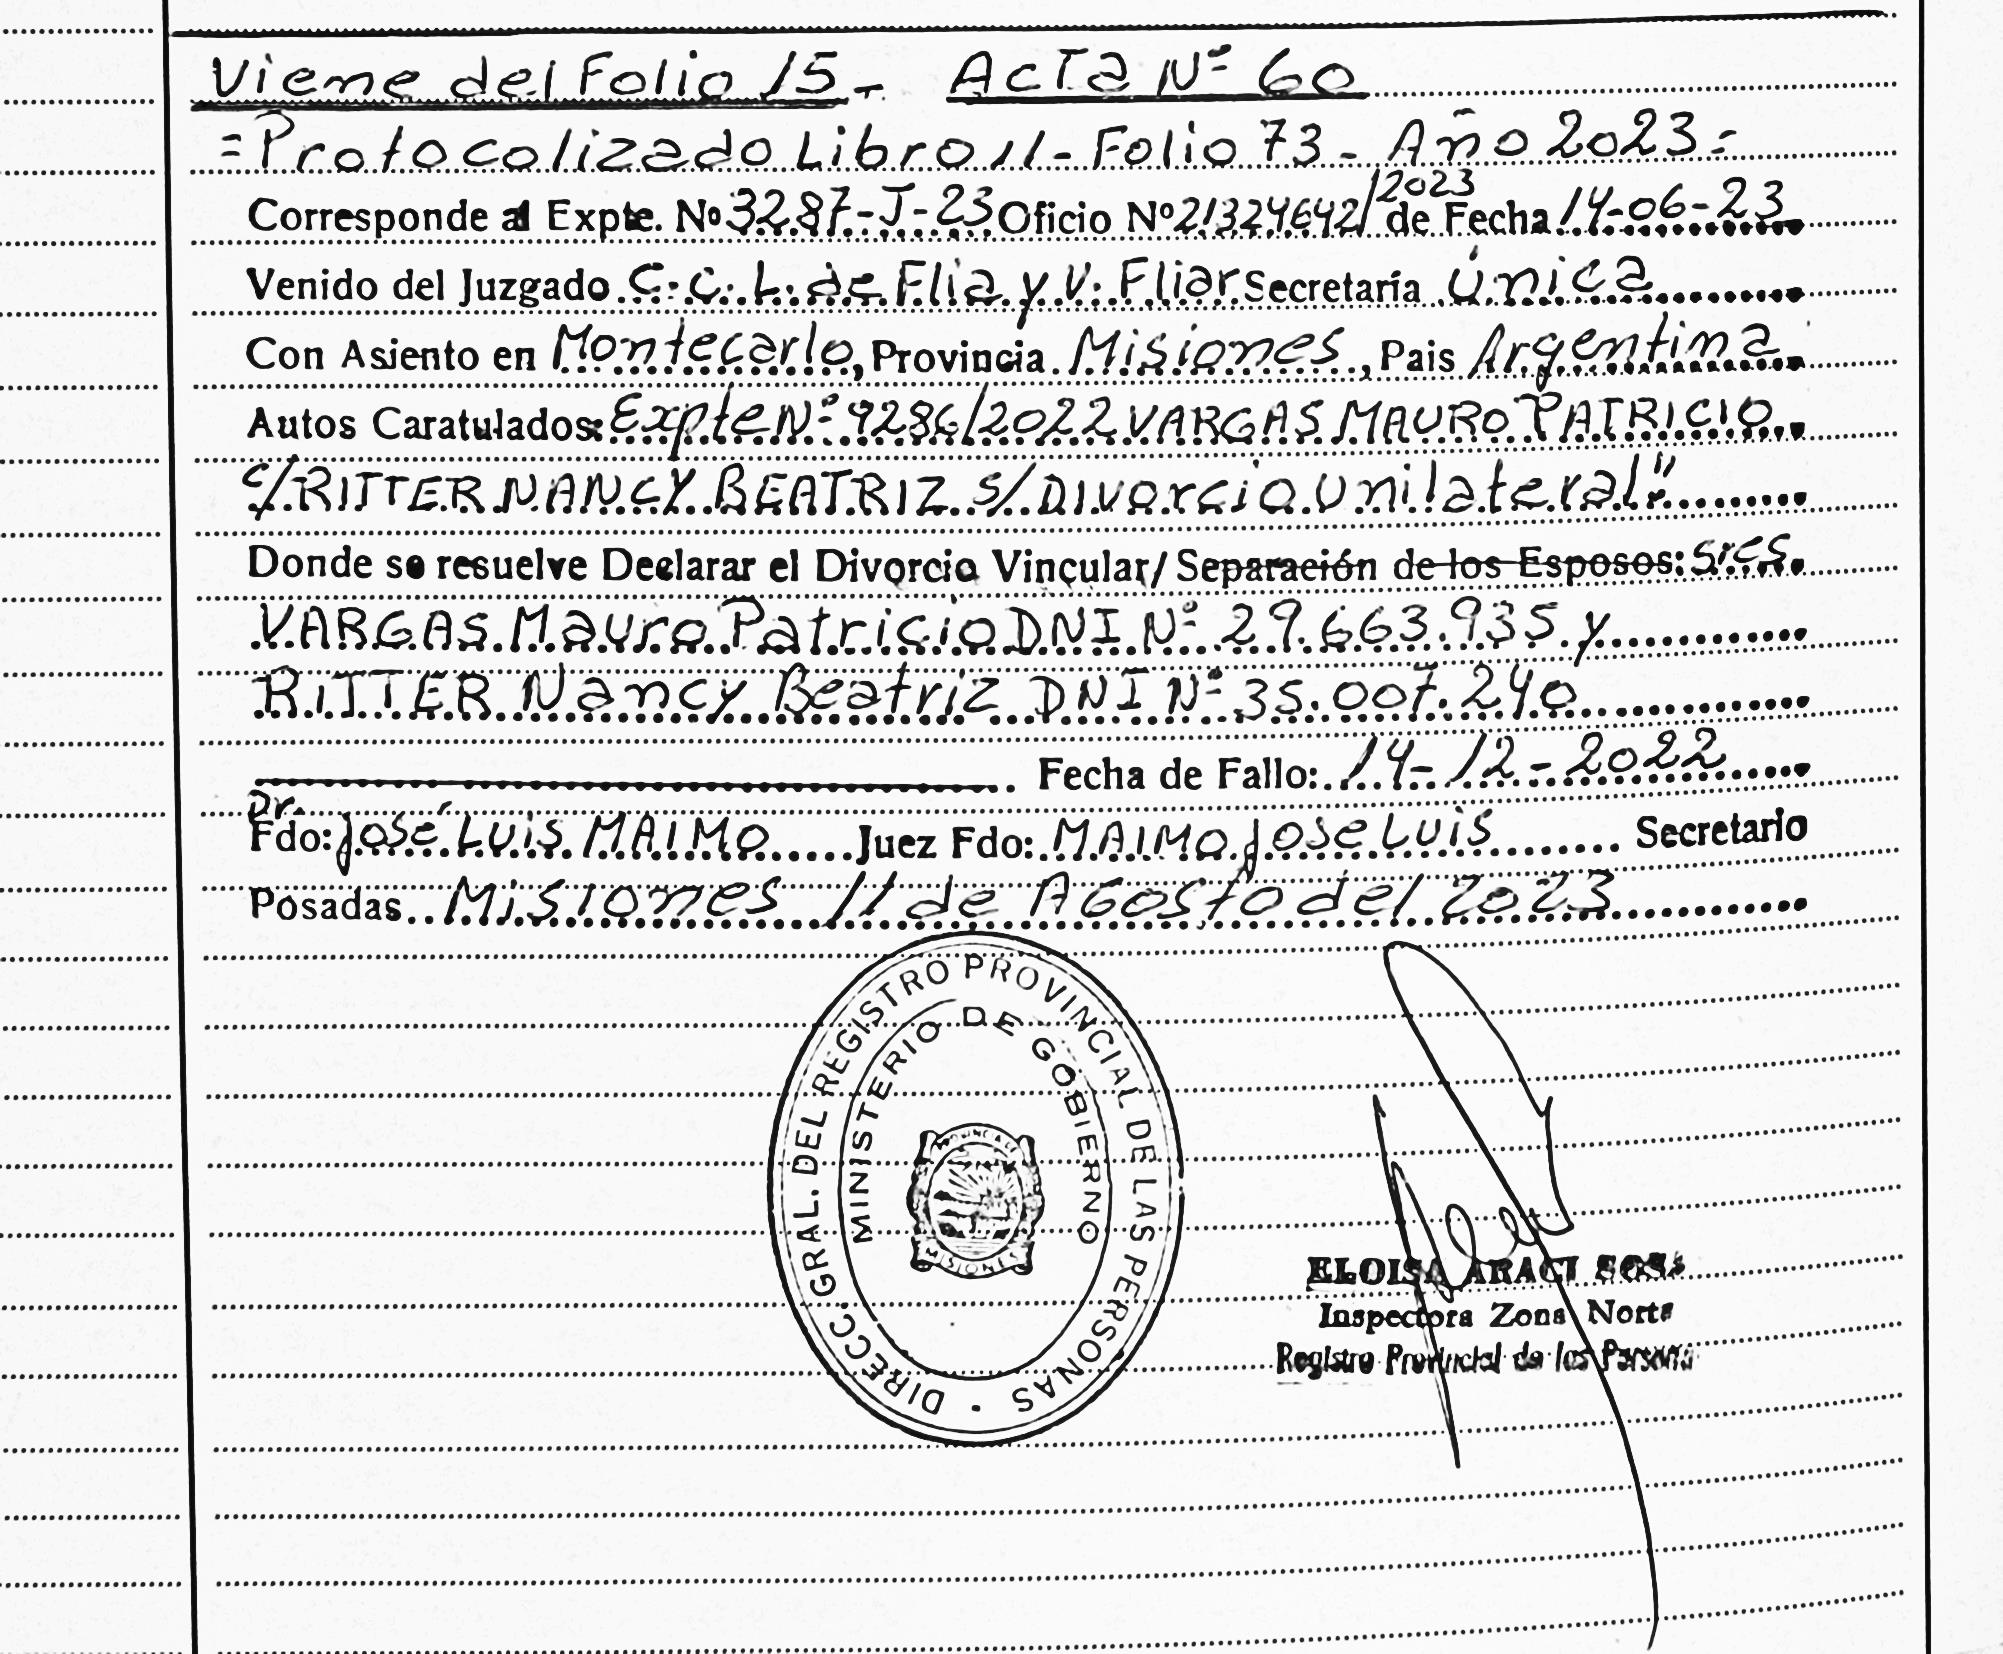 Viene del Folio 15- Acta Nº 60
=Protocolizado Libro 11- Folio 73- Año 2023=
Corresponde al Expte. Nº 3287-J-23 Oficio Nº 21324642/2023 de Fecha 14-06-23
Venido del Juzgado C.C.L. de Flia y V. Fliar Secretaría única
Con Asiento en Montecarlo, Provincia Misiones, Pais Argentina
Autos Caratulados: Expte Nº 9286/2022 VARGAS MAURO PATRICIO
c/RITTER NANCY BEATRIZ s/Divorcio unilateral"
Donde se resuelve Declarar el Divorcio Vincular/ Separación de los Esposos: sres
VARGAS Mauro Patricio DNI Nº 29.663.935 y
RITTER Nancy Beatriz DNI Nº 35.007.240
Fecha de Fallo: 14-12-2022
Dr.
Fdo: José Luis MAIMO Juez Fdo: MAIMO José Luis Secretario
Posadas Misiones 11 de Agosto del 2023
DIRECC. GRAL. DEL REGISTRO PROVINCIAL DE LAS PERSONAS
MINISTERIO DE GOBIERNO
PROVINCIA DE
MISIONES
ELOISA ARACI SOSA
Inspectora Zona Norte
Registro Provincial de las Personas